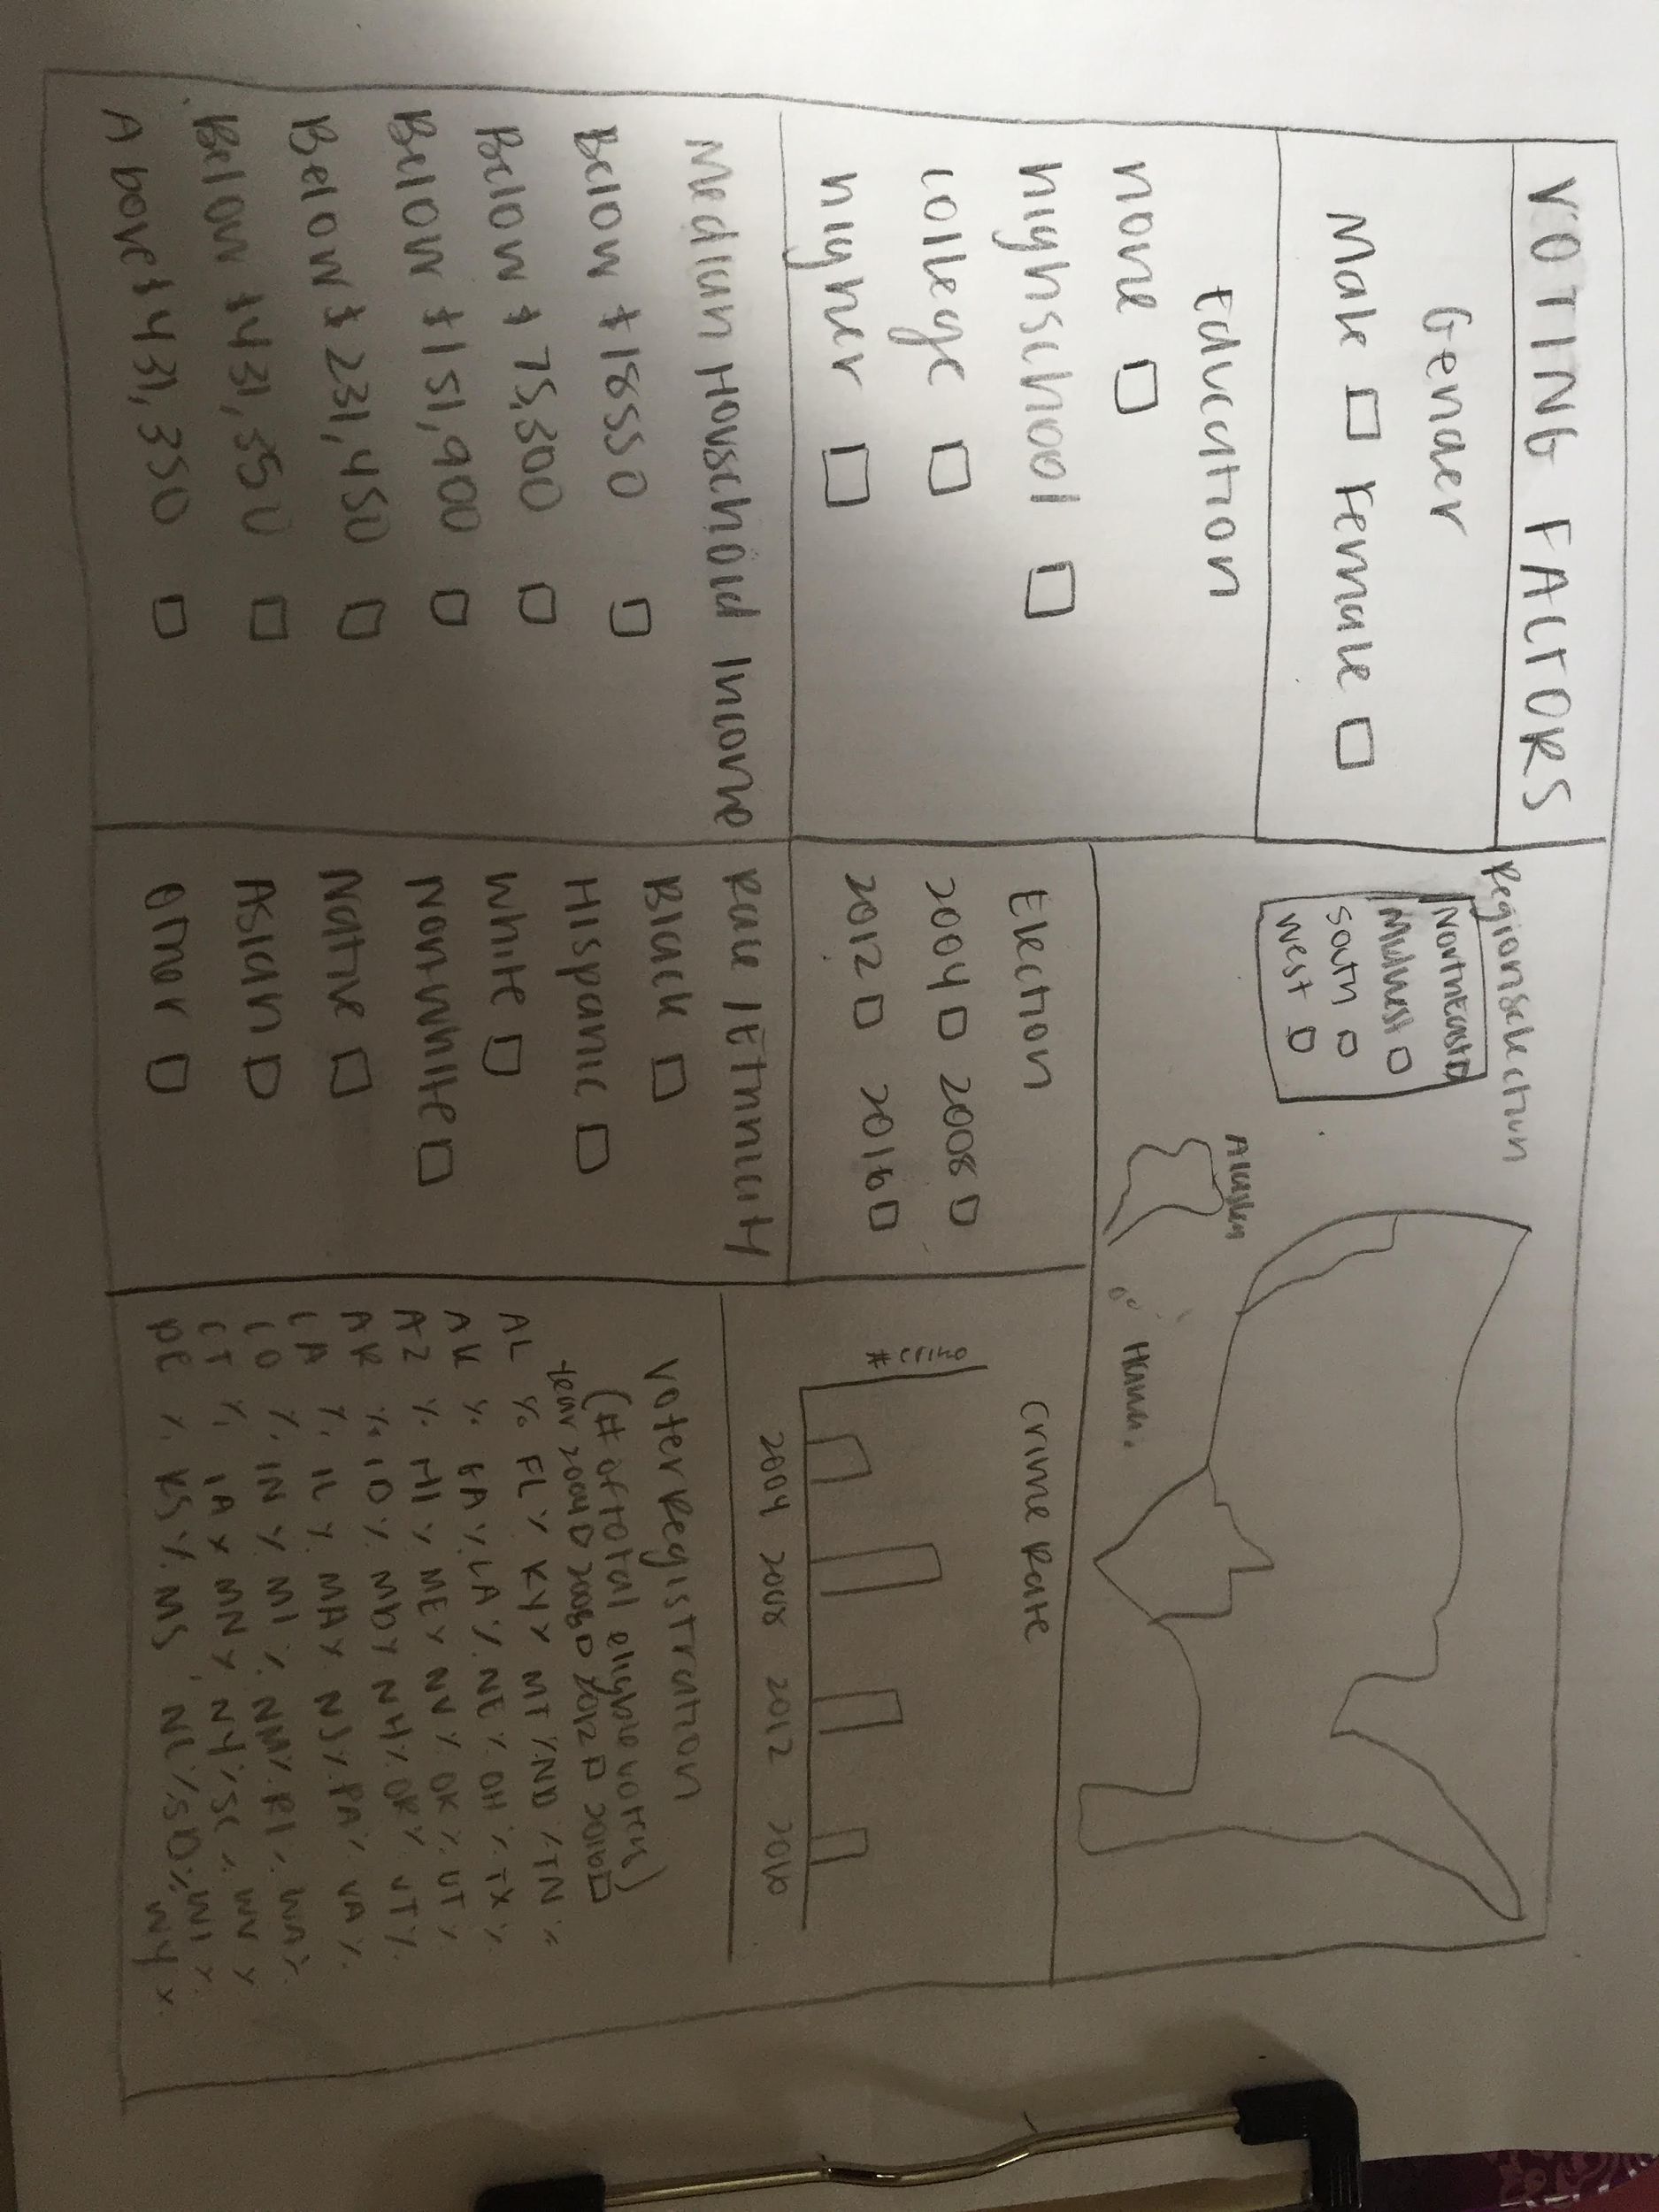 VOTING FACTORS
Gender
Male Female
Education
none
highschool
college
higher
Median Household Income
Below $18550
Below $75,300
Below $151,900
Below $231,450
Below $431,350
Above $431,350
Region selection
NorthEast
Midwest
South
West
Alaska
Hawaii
Election
2004 2008
2012 2016
Race/Ethnicity
Black
Hispanic
White
Nonwhite
Native
Asian
Other
Crime Rate
# crime
2004 2008 2012 2016
Voter Registration
(# of total eligible voters)
Year 2004 2008 2012 2016
AL % FL % KY % MT % ND % TN %
AK % GA % LA % NE % OH % TX %
AZ % HI % ME % NV % OK % UT %
AR % ID % MD % NH % OR % VT %
CA % IL % MA % NJ % PA % VA %
CO % IN % MI % NM % RI % WA %
CT % IA % MN % NY % SC % WV %
DE % KS % MS NC % SD % WI %
WY %